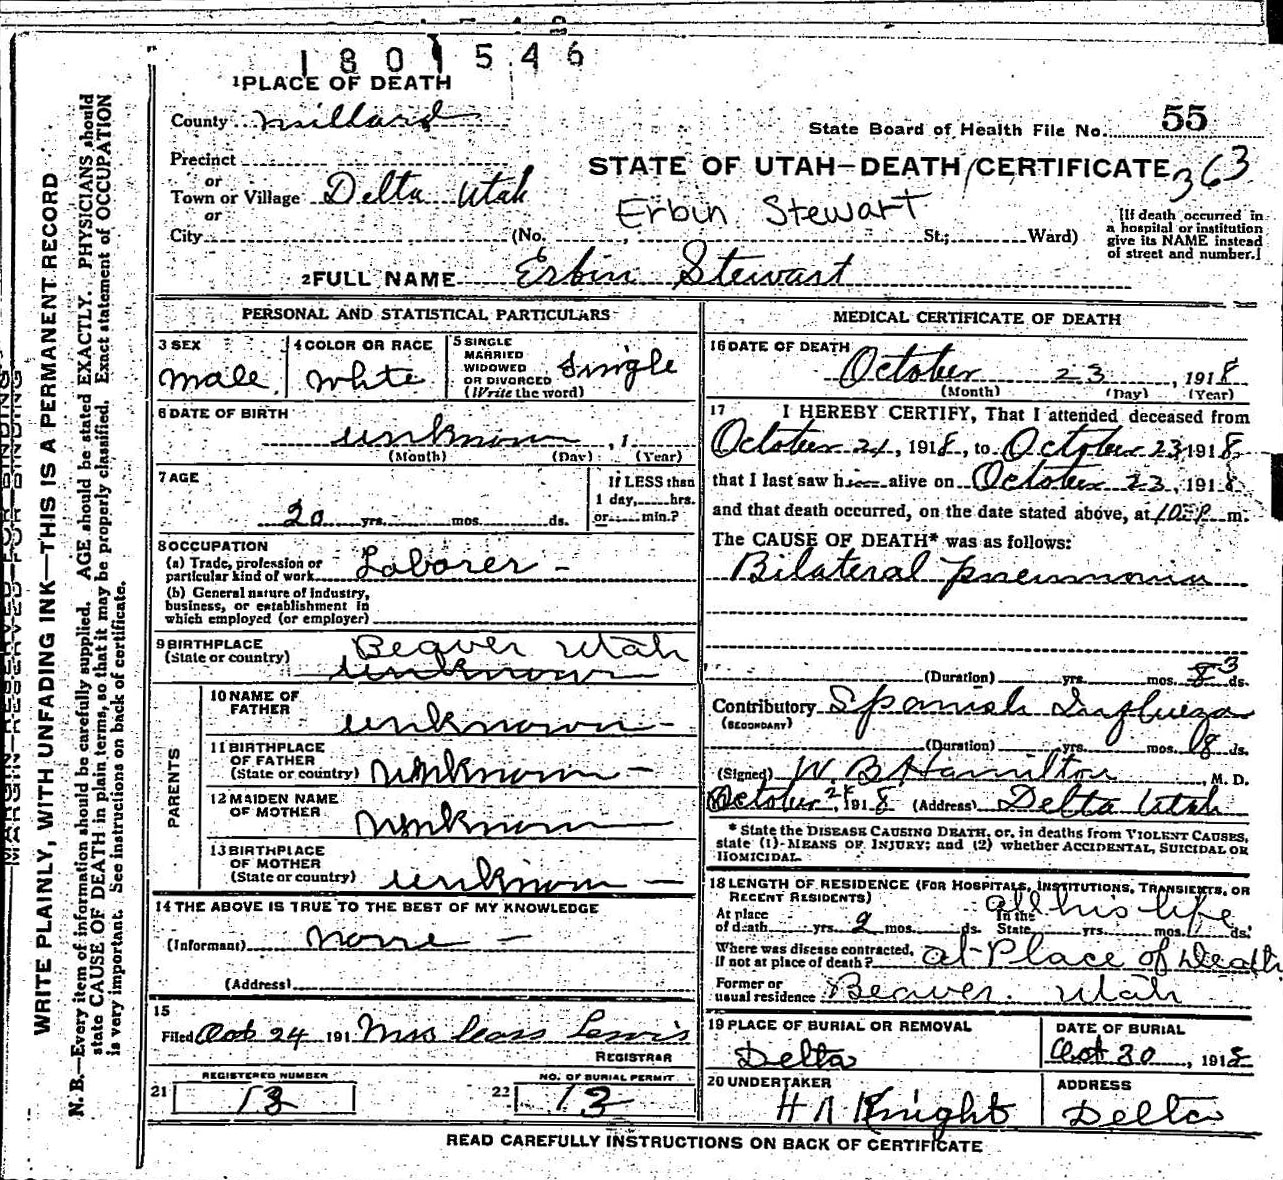 1801546
1 PLACE OF DEATH
County Millard
State Board of Health File No. 55
Precinct
STATE OF UTAH—DEATH CERTIFICATE 363
or
Town or Village Delta Utah
Erbin Stewart
or
City (No. , St.; Ward)
[If death occurred in
a hospital or institution
give its NAME instead
of street and number.]
2 FULL NAME Erbin Stewart
PERSONAL AND STATISTICAL PARTICULARS
3 SEX
Male
4 COLOR OR RACE
White
5 SINGLE
MARRIED
WIDOWED
OR DIVORCED
(Write the word)
Single
6 DATE OF BIRTH
unknown , 1
(Month) (Day) (Year)
7 AGE
20 yrs. mos. ds.
If LESS than
1 day, hrs.
or min.?
8 OCCUPATION
(a) Trade, profession or
particular kind of work Laborer -
(b) General nature of industry,
business, or establishment in
which employed (or employer)
9 BIRTHPLACE
(State or country)
Beaver Utah
unknown
PARENTS
10 NAME OF
FATHER
unknown -
11 BIRTHPLACE
OF FATHER
(State or country) unknown -
12 MAIDEN NAME
OF MOTHER
unknown
13 BIRTHPLACE
OF MOTHER
(State or country) unknown -
14 THE ABOVE IS TRUE TO THE BEST OF MY KNOWLEDGE
(Informant) None -
(Address)
15
Filed Oct 24 191 Mrs Lewis
REGISTRAR
21
REGISTERED NUMBER
13
22
NO. OF BURIAL PERMIT
13
MEDICAL CERTIFICATE OF DEATH
16 DATE OF DEATH
October 23, 1918
(Month) (Day) (Year)
17 I HEREBY CERTIFY, That I attended deceased from
October 21, 1918, to October 23 1918
that I last saw h alive on October 23, 1918
and that death occurred, on the date stated above, at P m.
The CAUSE OF DEATH* was as follows:
Bilateral pneumonia
(Duration) yrs. mos. 8 3 ds.
Contributory Spanish Influenza
(SECONDARY)
(Duration) yrs. mos. 8 ds.
(Signed) W. B Hamilton, M. D.
October 24 1918 (Address) Delta Utah
* State the DISEASE CAUSING DEATH, or, in deaths from VIOLENT CAUSES,
state (1) MEANS OF INJURY; and (2) whether ACCIDENTAL, SUICIDAL OR
HOMICIDAL.
18 LENGTH OF RESIDENCE (FOR HOSPITALS, INSTITUTIONS, TRANSIENTS, OR
RECENT RESIDENTS)
all his life
At place
of death yrs. 2 mos. ds.
In the
State yrs. mos. ds.
Where was disease contracted,
If not at place of death? at Place of Death
Former or
usual residence Beaver. Utah
19 PLACE OF BURIAL OR REMOVAL
Delta
DATE OF BURIAL
Oct 30, 1918
20 UNDERTAKER
H Knight
ADDRESS
Delta
READ CAREFULLY INSTRUCTIONS ON BACK OF CERTIFICATE
MARGIN RESERVED FOR BINDING
WRITE PLAINLY, WITH UNFADING INK—THIS IS A PERMANENT RECORD
N. B.—Every item of information should be carefully supplied. AGE should be stated EXACTLY. PHYSICIANS should
state CAUSE OF DEATH in plain terms, so that it may be properly classified. Exact statement of OCCUPATION
is very important. See instructions on back of certificate.